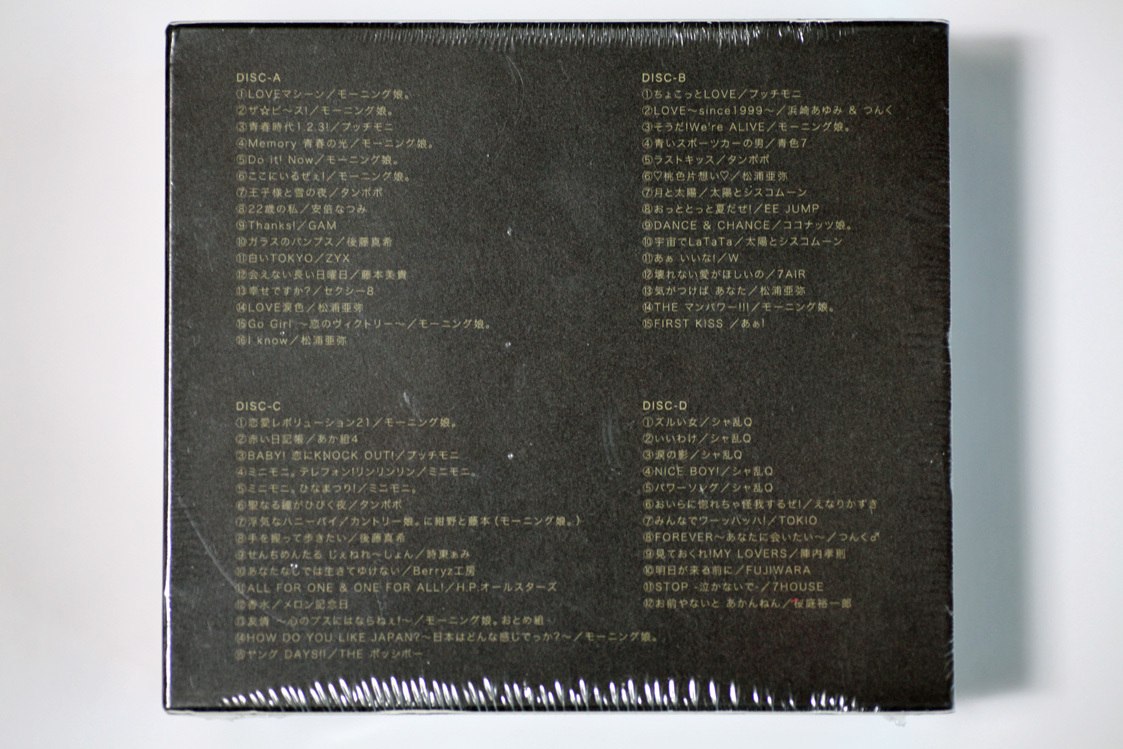 DISC-A
①LOVEマシーン／モーニング娘。
②ザ☆ピ～ス!／モーニング娘。
③青春時代1.2.3!／プッチモニ
④Memory 青春の光／モーニング娘。
⑤Do It! Now／モーニング娘。
⑥ここにいるぜぇ!／モーニング娘。
⑦王子様と雪の夜／タンポポ
⑧22歳の私／安倍なつみ
⑨Thanks!／GAM
⑩ガラスのパンプス／後藤真希
⑪白いTOKYO／ZYX
⑫会えない長い日曜日／藤本美貴
⑬幸せですか?／セクシー8
⑭LOVE涙色／松浦亜弥
⑮Go Girl ～恋のヴィクトリー～／モーニング娘。
⑯I know／松浦亜弥
DISC-B
①ちょこっとLOVE／プッチモニ
②LOVE～since1999～／浜崎あゆみ & つんく
③そうだ!We're ALIVE／モーニング娘。
④青いスポーツカーの男／青色7
⑤ラストキッス／タンポポ
⑥♡桃色片想い♡／松浦亜弥
⑦月と太陽／太陽とシスコムーン
⑧おっととっと夏だぜ!／EE JUMP
⑨DANCE & CHANCE／ココナッツ娘。
⑩宇宙でLaTaTa／太陽とシスコムーン
⑪あぁ いいな!／W
⑫壊れない愛がほしいの／7AIR
⑬気がつけば あなた／松浦亜弥
⑭THE マンパワー!!!／モーニング娘。
⑮FIRST KISS ／あぁ!
DISC-C
①恋愛レボリューション21／モーニング娘。
②赤い日記帳／あか組4
③BABY! 恋にKNOCK OUT!／プッチモニ
④ミニモニ。テレフォン!リンリンリン／ミニモニ。
⑤ミニモニ。ひなまつり!／ミニモニ。
⑥聖なる鐘がひびく夜／タンポポ
⑦浮気なハニーパイ／カントリー娘。に紺野と藤本(モーニング娘。)
⑧手を握って歩きたい／後藤真希
⑨せんちめんたる じぇねれ～しょん／時東ぁみ
⑩あなたなしでは生きてゆけない／Berryz工房
⑪ALL FOR ONE & ONE FOR ALL!／H.P.オールスターズ
⑫香水／メロン記念日
⑬友情 ～心のブスにはならねぇ!～／モーニング娘。おとめ組
⑭HOW DO YOU LIKE JAPAN?～日本はどんな感じでっか?～／モーニング娘。
⑮ヤング DAYS!!／THE ポッシボー
DISC-D
①ズルい女／シャ乱Q
②いいわけ／シャ乱Q
③涙の影／シャ乱Q
④NICE BOY!／シャ乱Q
⑤パワーソング／シャ乱Q
⑥おいらに惚れちゃ怪我するぜ!／えなりかずき
⑦みんなでワーッハッハ!／TOKIO
⑧FOREVER～あなたに会いたい～／つんく♂
⑨見ておくれ!MY LOVERS／陣内孝則
⑩明日が来る前に／FUJIWARA
⑪STOP -泣かないで-／7HOUSE
⑫お前やないと あかんねん／桜庭裕一郎